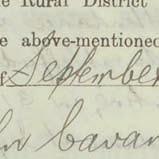 Rural District
above-mentioned
of September
Cavan